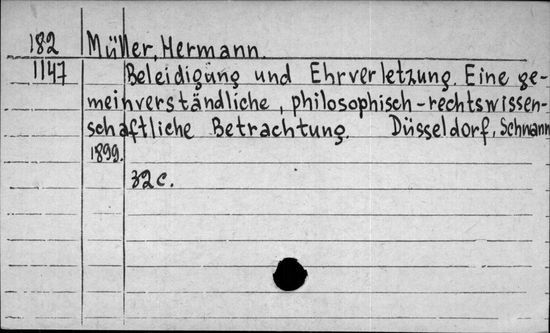 182 Müller, Hermann.
1147 Beleidigung und Ehrverletzung. Eine ge-
meinverständliche, philosophisch-rechtswissen-
schaftliche Betrachtung. Düsseldorf, Schmann
1899.
32 c.